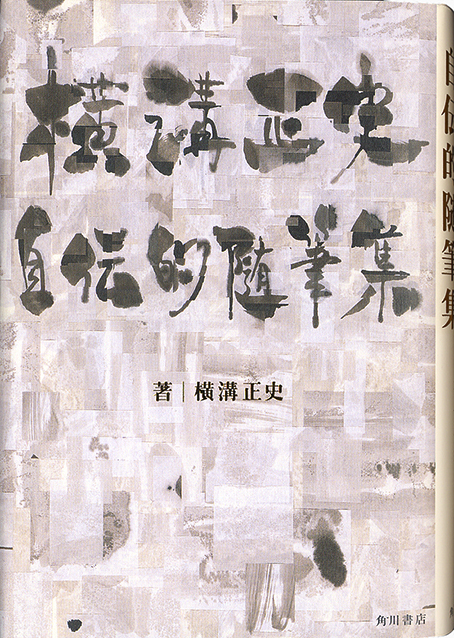 横溝正史
自伝的随筆集
著｜横溝正史
角川書店
自伝的随筆集